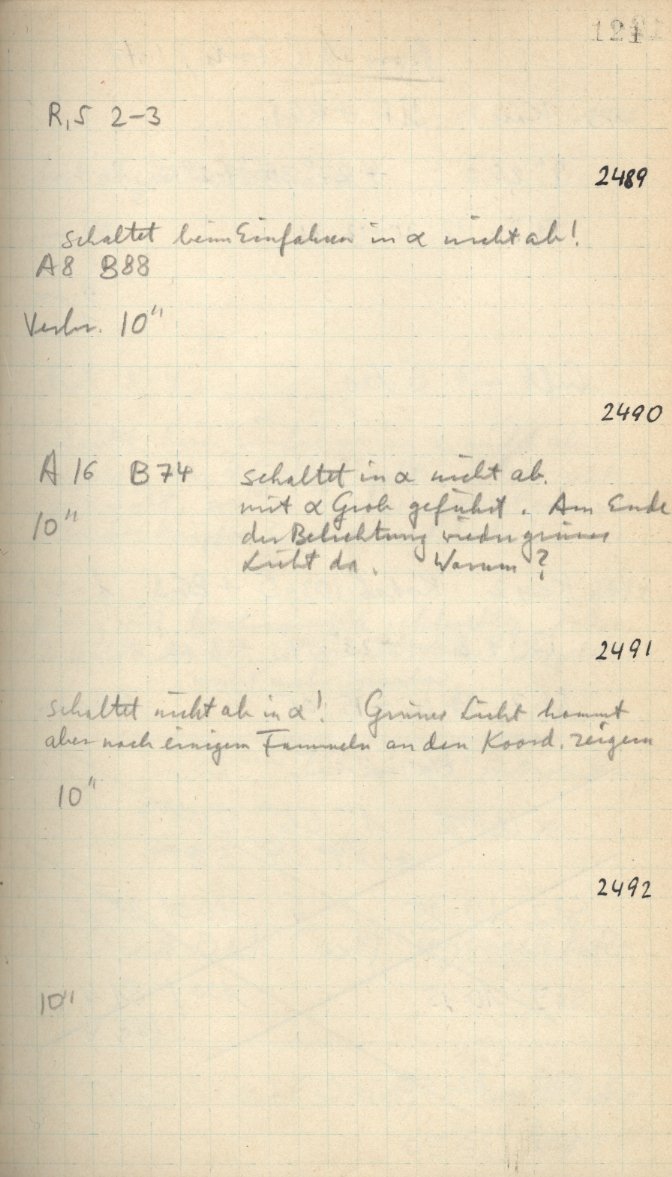 121
R,S 2–3
2489
schaltet beim Einfahren in α nicht ab!
A8 B88
Verbr. 10"
2490
A 16 B 74 schaltet in α nicht ab.
mit α Grob geführt. Am Ende
10"
der Belichtung wieder grünes
Licht da. Warum?
2491
schaltet nicht ab in α! Grünes Licht kommt
aber nach einigem Fummeln an den Koord. zeigern
10"
2492
10"